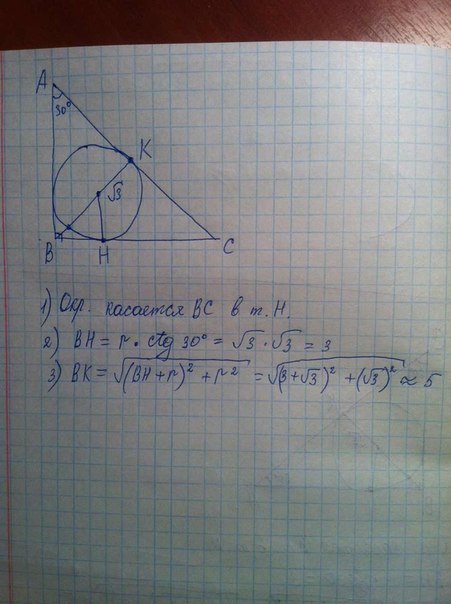 A
30°
K
√3
B
H
C
1) Окр. касается BC в т. H.
2) BH = r · ctg 30° = √3 · √3 = 3
3) BK = √((BH + r)² + r²) = √((3 + √3)² + (√3)²) ≈ 5